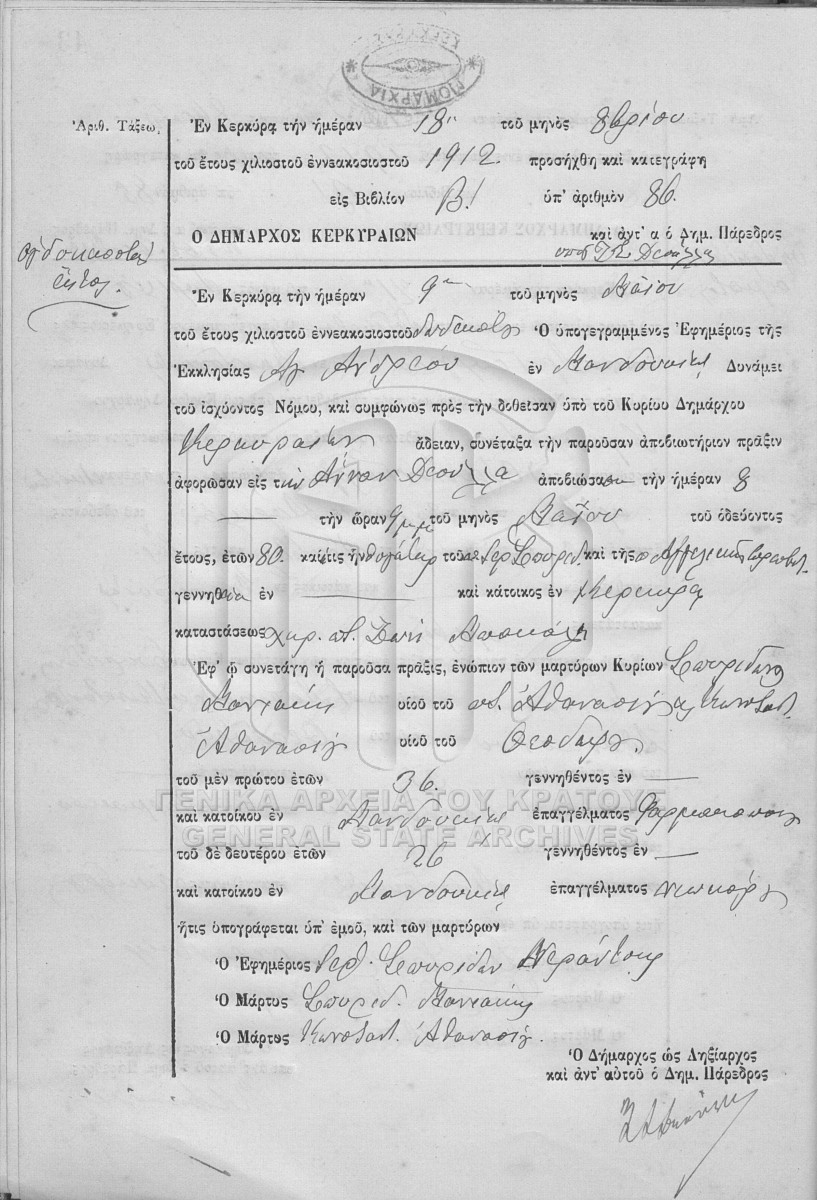 ΔΗΜΑΡΧΙΑ
Ἀριθ. Τάξεως
Ἐν Κερκύρᾳ τὴν ἡμέραν 18ῃ τοῦ μηνὸς 8βρίου
τοῦ ἔτους χιλιοστοῦ ἐννεακοσιοστοῦ 1912. προσήχθη καὶ κατεγράφη
εἰς Βιβλίον Β! ὑπ' ἀριθμὸν 86.
Ὁ ΔΗΜΑΡΧΟΣ ΚΕΡΚΥΡΑΙΩΝ καὶ ἀντ' α ὁ Δημ. Πάρεδρος
Ἐν Κερκύρᾳ τὴν ἡμέραν 9ῃ τοῦ μηνὸς Μαΐου
τοῦ ἔτους χιλιοστοῦ ἐννεακοσιοστοῦ δωδεκάτου Ὁ ὑπογεγραμμένος Ἐφημέριος τῆς
Ἐκκλησίας Ἁγ Ἀνδρέου ἐν Μανδουκίῳ Δυνάμει
τοῦ ἰσχύοντος Νόμου, καὶ συμφώνως πρὸς τὴν δοθεῖσαν ὑπὸ τοῦ Κυρίου Δημάρχου
Κερκυραίων ἄδειαν, συνέταξα τὴν παροῦσαν ἀποβιωτήριον πρᾶξιν
ἀφορῶσαν εἰς τὴν Ἄνναν ἀποβιώσασαν τὴν ἡμέραν 8
τὴν ὥραν 9 μμ τοῦ μηνὸς Μαΐου τοῦ ὁδεύοντος
ἔτους, ἐτῶν 80. καὶ ἥτις ἦν θυγάτηρ τοῦ Ἱερ Σπυρίδ. καὶ τῆς π Ἀγγελικῆς
γεννηθεῖσα ἐν καὶ κάτοικος ἐν Κερκύρᾳ
καταστάσεως χηρ. π. Ζωῆ
Ἐφ' ᾧ συνετάγη ἡ παροῦσα πρᾶξις, ἐνώπιον τῶν μαρτύρων Κυρίων Σπυρίδων
υἱοῦ τοῦ π. Ἀθανασίου κ Κωνσταντ.
Ἀθανασίου υἱοῦ τοῦ Θεοδώρου
τοῦ μὲν πρώτου ἐτῶν 36. γεννηθέντος ἐν
ΓΕΝΙΚΑ ΑΡΧΕΙΑ ΤΟΥ ΚΡΑΤΟΥΣ
καὶ κατοίκου ἐν Μανδουκίῳ ἐπαγγέλματος Φαρμακοποιοῦ
GENERAL STATE ARCHIVES
τοῦ δὲ δευτέρου ἐτῶν 26 γεννηθέντος ἐν
καὶ κατοίκου ἐν Μανδουκίῳ ἐπαγγέλματος νεωκόρου
ἥτις ὑπογράφεται ὑπ' ἐμοῦ, καὶ τῶν μαρτύρων
Ὁ Ἐφημέριος Ἱερ. Σπυρίδων
Ὁ Μάρτυς Σπυρίδ.
Ὁ Μάρτυς Κωνσταντ. Ἀθανασίου.
Ὁ Δήμαρχος ὡς Ληξίαρχος
καὶ ἀντ' αὐτοῦ ὁ Δημ. Πάρεδρος